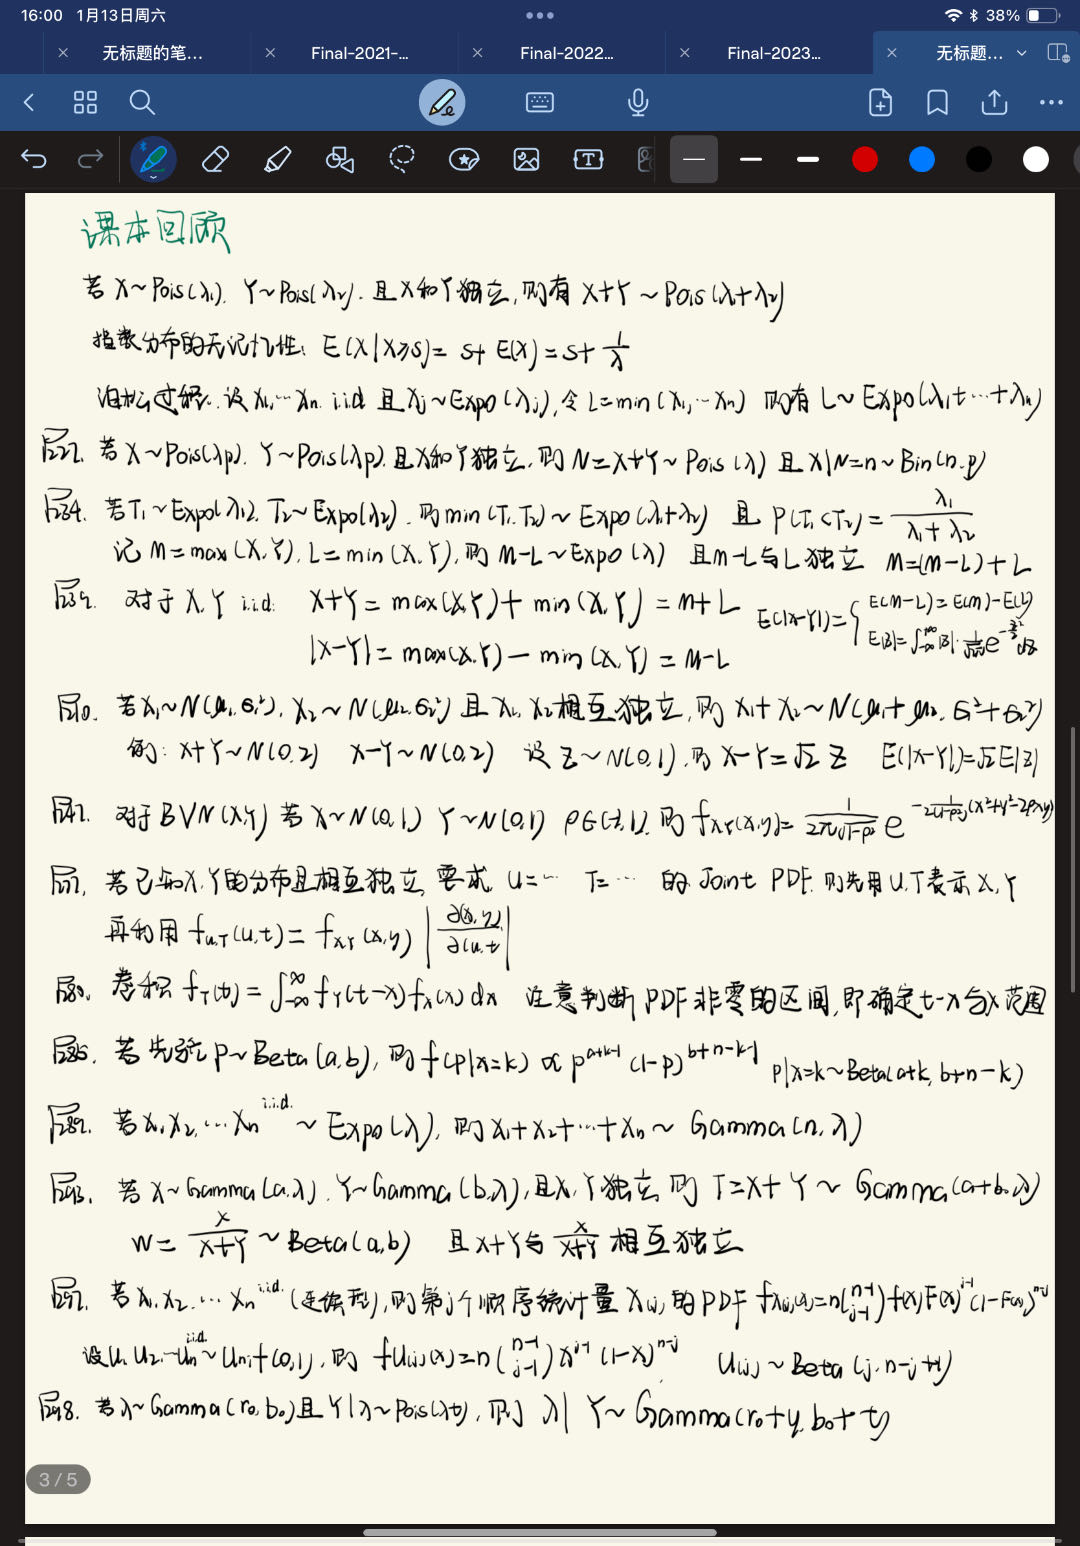 16:00 1月13日周六
38%
无标题的笔... Final-2021-... Final-2022... Final-2023... 无标题...
课本回顾
若 X~Pois(λ₁), Y~Pois(λ₂), 且X和Y独立,则有 X+Y ~Pois(λ₁+λ₂)
指数分布的无记忆性: E(X|X≥s)= s+ E(X) = s+ 1/λ
泊松过程. 设 X₁,…Xn. i.i.d 且 Xj~Expo(λj), 令 L=min(X₁,…Xn) 则有 L~Expo(λ₁+…+λn)
若 X~Pois(λp). Y~Pois(λp).且X和Y独立,则 N=X+Y~Pois(λ) 且 X|N=n~Bin(n.p)
若T₁~Expo(λ₁). T₂~Expo(λ₂). 则min(T₁.T₂)~Expo(λ₁+λ₂) 且 P(T₁<T₂)= λ₁/(λ₁+λ₂)
记 M=max(X,Y), L=min(X,Y), 则 M-L~Expo(λ) 且M-L与L独立 M=(M-L)+L
对于 X,Y i.i.d. X+Y=max(X,Y)+min(X,Y)=M+L E(|X-Y|)={ E(M-L)=E(M)-E(L)
|X-Y|=max(X,Y)-min(X,Y)=M-L
若X₁~N(μ₁,σ₁²), X₂~N(μ₂,σ₂²) 且X₁,X₂相互独立,则 X₁+X₂~N(μ₁+μ₂,σ₁²+σ₂²)
例: X+Y~N(0,2) X-Y~N(0,2) 设 Z~N(0,1), 则 X-Y=√2 Z E(|X-Y|)=√2E|Z|
对于BVN(X,Y) 若 X~N(0,1) Y~N(0,1) 则 f_{X,Y}(x,y)= 1/(2π√(1-ρ²)) e^{-1/(2(1-ρ²))(x²+y²-2ρxy)}
若已知X,Y的分布且相互独立, 要求 U=… T=… 的 Joint PDF. 则先用U,T表示X,Y
再利用 f_{U,T}(u,t)= f_{X,Y}(x,y) |∂(x,y)/∂(u,t)|
卷积 f_T(t)=∫_{-∞}^{∞} f_Y(t-x)f_X(x)dx 注意判断PDF非零的区间,即确定t-x与x范围
若先验p~Beta(a,b), 则 f(p|x=k) ∝ p^{a+k-1}(1-p)^{b+n-k-1} P|X=k~Beta(a+k,b+n-k)
若X₁,X₂,…Xn i.i.d. ~Expo(λ), 则 X₁+X₂+…+Xn ~ Gamma(n,λ)
若 X~Gamma(a,λ). Y~Gamma(b,λ),且X,Y独立, 则 T=X+Y ~ Gamma(a+b,λ)
W= X/(X+Y) ~Beta(a,b) 且X+Y与 X/(X+Y) 相互独立
若X₁,X₂…Xn i.i.d. (连续型),则第j个顺序统计量X(j)的PDF f_{X(j)}(x)=n(n-1 j-1)f(x)F(x)^{j-1}(1-F(x))^{n-j}
设U₁,U₂…Un i.i.d. ~Unif(0,1), 则 f_{U(j)}(x)=n(n-1 j-1)x^{j-1}(1-x)^{n-j} U(j)~Beta(j,n-j+1)
若λ~Gamma(r₀,b₀)且Y|λ~Pois(λt), 则 λ|Y~Gamma(r₀+y,b₀+t)
3 / 5